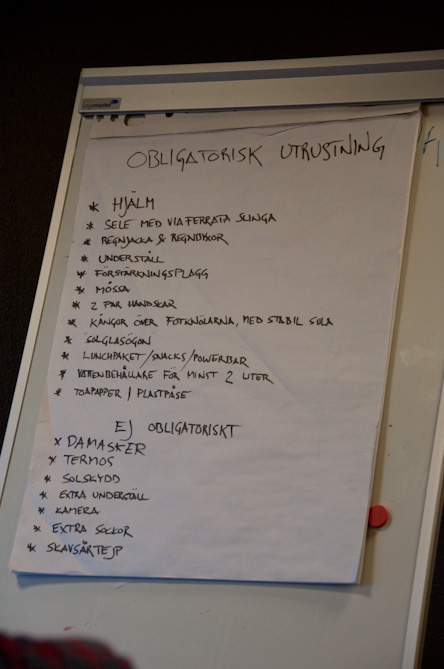 OBLIGATORISK UTRUSTNING
* HJÄLM
* SELE MED VIA FERRATA SLINGA
* REGNJACKA & REGNBYXOR
* UNDERSTÄLL
* FÖRSTÄRKNINGSPLAGG
* MÖSSA
* 2 PAR HANDSKAR
* KÄNGOR ÖVER FOTKNÖLARNA, MED STABIL SULA
* SOLGLASÖGON
* LUNCHPAKET/SNACKS/POWERBAR
* VATTENBEHÅLLARE FÖR MINST 2 LITER
* TOAPAPPER / PLASTPÅSE
EJ OBLIGATORISKT
* DAMASKER
* TERMOS
* SOLSKYDD
* EXTRA UNDERSTÄLL
* KAMERA
* EXTRA SOCKOR
* SKAVSÅRTEJP